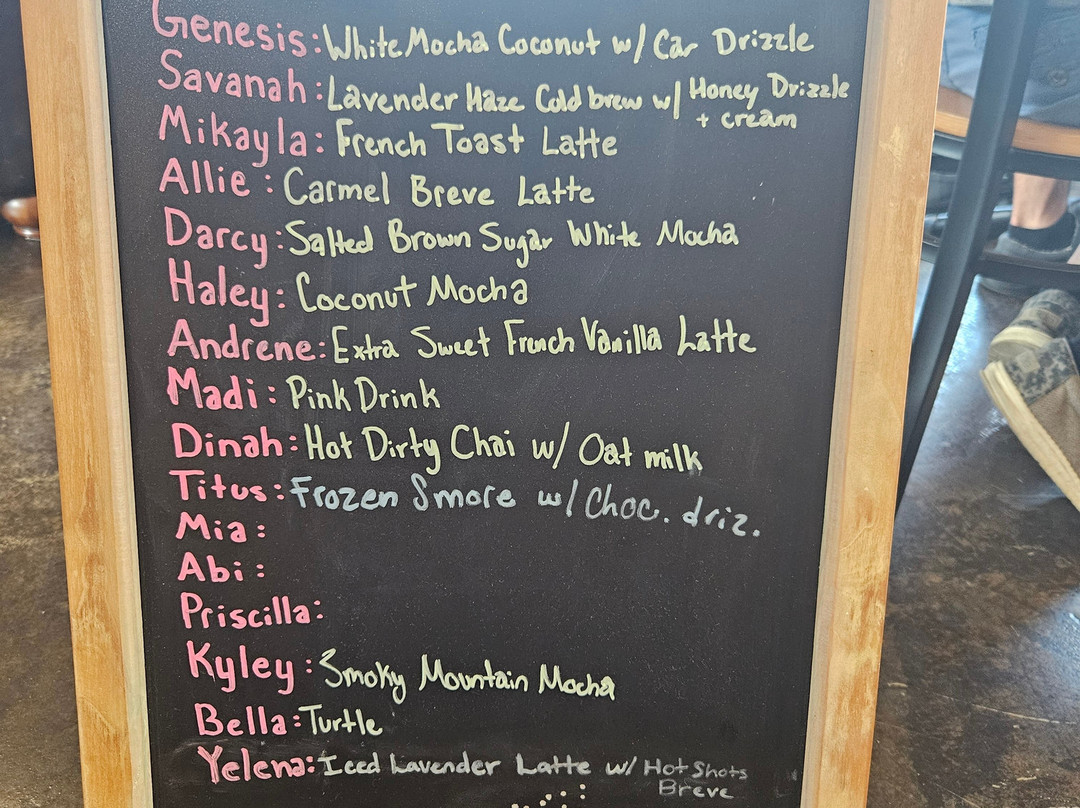 Genesis: White Mocha Coconut w/ Car Drizzle
Savanah: Lavender Haze Cold brew w/ Honey Drizzle
+ cream
Mikayla: French Toast Latte
Allie: Carmel Breve Latte
Darcy: Salted Brown Sugar White Mocha
Haley: Coconut Mocha
Andrene: Extra Sweet French Vanilla Latte
Madi: Pink Drink
Dinah: Hot Dirty Chai w/ Oat milk
Titus: Frozen Smore w/ Choc. driz.
Mia:
Abi:
Priscilla:
Kyley: Smoky Mountain Mocha
Bella: Turtle
Yelena: Iced Lavender Latte w/ Hot Shots
Breve